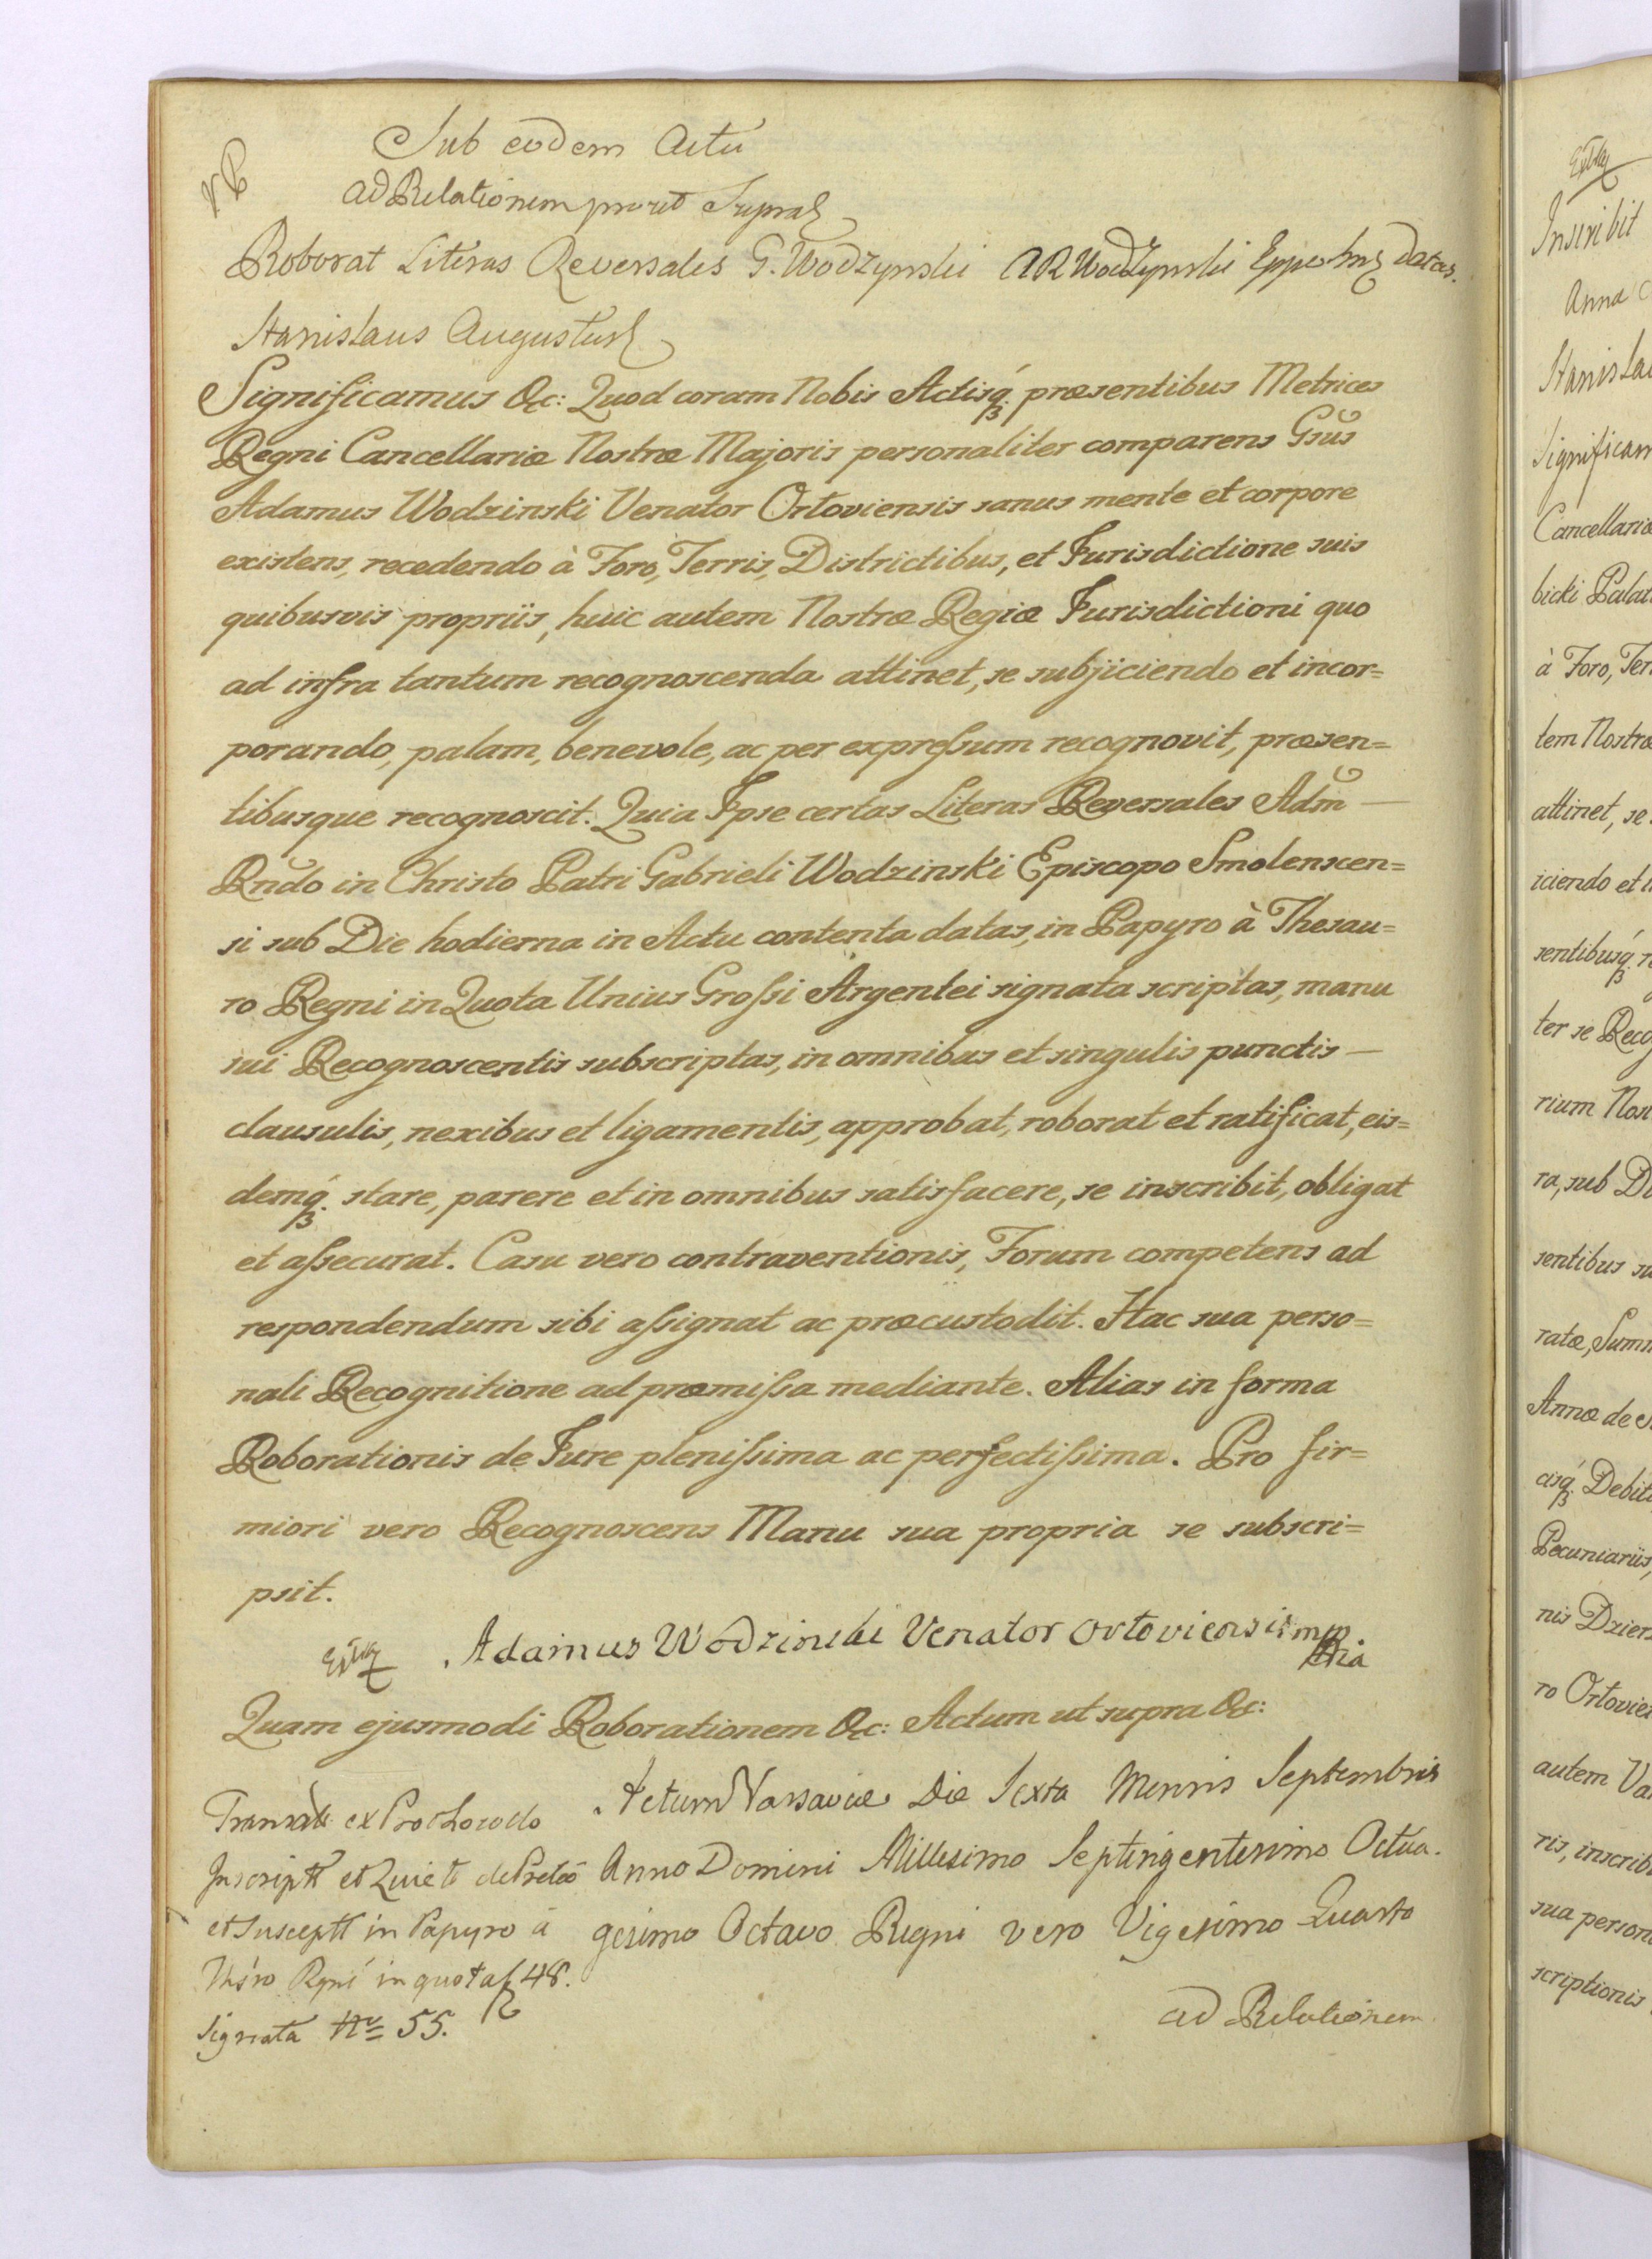 Sub eodem Actu
ad Relationem prout Supra
Roborat Literas Reversales G. Wodzynski AR Wodzynski Eppo datas.
Stanislaus Augustus
Significamus &c: Quod coram Nobis Actisq́ꝫ præsentibus Metrices
Regni Cancellariæ Nostræ Majoris personaliter comparens Gsũs
Adamus Wodzinski Venator Orłoviensis sanus mente et corpore
existens, recedendo à Foro, Terris, Districtibus, et Jurisdictione suis
quibusvis propriis, huic autem Nostræ Regiæ Jurisdictioni quo
ad infra tantum recognoscenda attinet, se subjiciendo et incor=
porando, palam, benevole, ac per expreſsum recognovit, præsen=
tibusque recognoscit. Quia Ipse certas Literas Reversales Adm̃ —
Rndo in Christo Patri Gabrieli Wodzinski Episcopo Smolenscen=
si sub Die hodierna in Actu contenta datas, in Papyro à Thesau=
ro Regni in Quota Unius Groſsi Argentei signata scriptas, manu
sui Recognoscentis subscriptas, in omnibus et singulis punctis —
clausulis, nexibus et ligamentis, approbat, roborat et ratificat, eis=
demq́ꝫ stare, parere et in omnibus satisfacere, se inscribit, obligat
et aſsecurat. Casu vero contraventionis, Forum competens ad
respondendum sibi aſsignat ac præcustodit. Hac sua perso=
nali Recognitione ad præmiſsa mediante. Alias in forma
Roborationis de Jure pleniſsima ac perfectiſsima. Pro fir=
miori vero Recognoscens Manu sua propria se subscri=
psit.
Adamus Wodzinski Venator Orłoviensis mp
Quam ejusmodi Roborationem &c: Actum ut supra &c:
Actum Varsaviæ Die Sexta Mensis Septembris
Anno Domini Millesimo Septingentesimo Octua.
gesimo Octavo Regni vero Vigesimo Quarto
ad Relationem
ex Prothocollo
Inscriptt et Quiett
et Susceptt in Papyro à
Ths̃ro Rgni in quota f 48.
signata Nro 55.
Inscribit
Anna
Stanisla
Significam
Cancellariæ
bicki Palat
à Foro, Ter
tem Nostræ
attinet, se
iciendo et i
sentibusq́ꝫ r
ter se Reco
rium Nos
ra, sub Di
sentibus su
ratæ, Sum
Annæ de
cisq́ꝫ Debit
Pecuniariis,
nis Dzier
ro Orłovien
autem Va
ris, inscrib
sua person
scriptionis